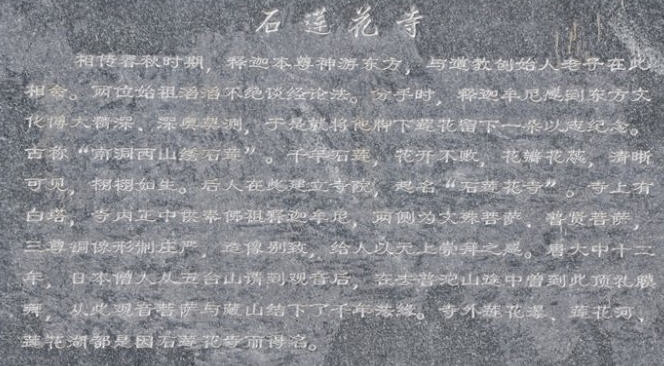 石莲花寺
相传春秋时期，释迦本尊神游东方，与道教创始人老子在此
相会。两位始祖滔滔不绝谈经论法。分手时，释迦牟尼感到东方文
化博大精深、深奥莫测，于是就将他脚下莲花留下一朵以志纪念。
古称“南洞西山绕石莲”。千年石莲，花开不败，花瓣花蕊，清晰
可见，栩栩如生。后人在此建立寺院，起名“石莲花寺”。寺上有
白塔，寺内正中供奉佛祖释迦牟尼，两侧为文殊菩萨、普贤菩萨，
三尊铜像形制庄严，造像别致，给人以无上崇拜之感。唐大中十二
年，日本僧人从五台山请到观音后，在去普沱山途中曾到此顶礼膜
拜，从此观音菩萨与藏山结下了千年法缘。寺外莲花瀑、莲花河、
莲花湖都是因石莲花寺而得名。